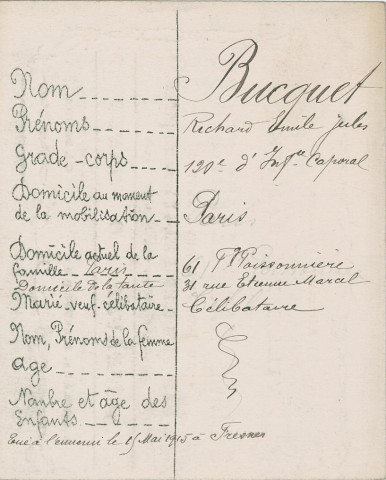 Nom Bucquet
Prénoms Richard Emile Jules
Grade-corps 120e d'Inf.ie Caporal
Domicile au moment
de la mobilisation Paris
Domicile actuel de la
famille Paris 61 Fg Poissonnière
Domicile de la tante 31 rue Etienne Marcel
Marié-veuf-célibataire Célibataire
Nom, Prénoms de la femme
age
Nombre et âge des
Enfants
Tué à l'ennemi le 15 Mai 1915 à Fresnes